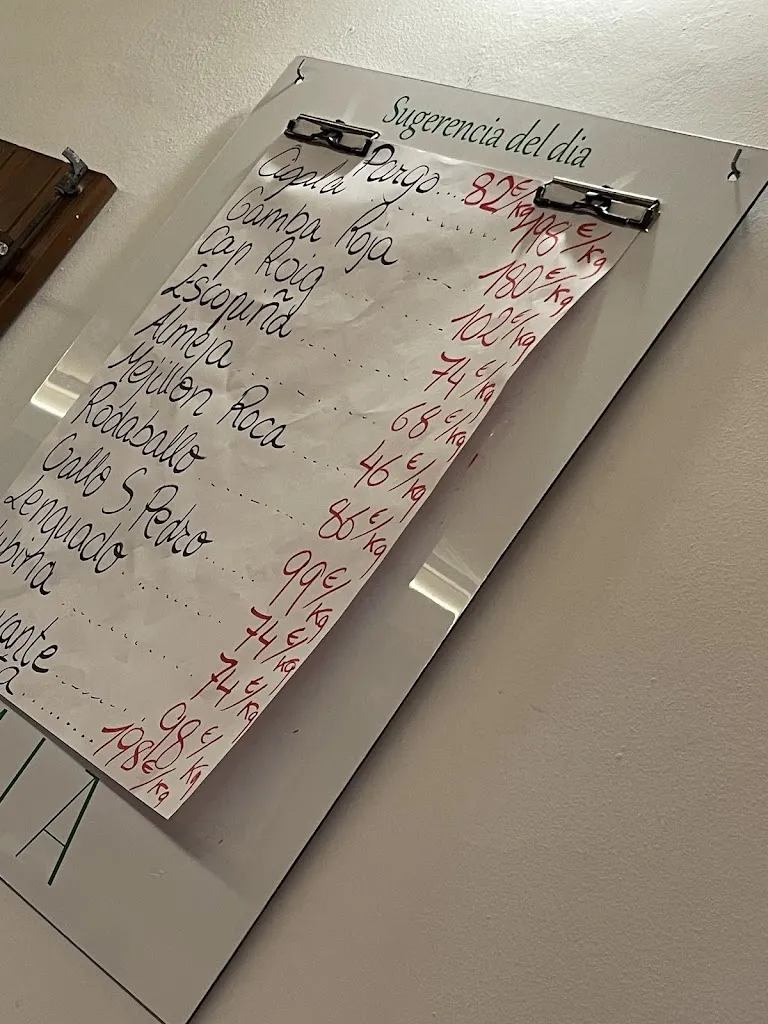 Sugerencia del dia
Pargo...82€/kg
Cigala.........196€/kg
Gamba Roja......180€/kg
Cap Roig.........102€/kg
Escopiña.........74€/kg
Almeja.........68€/kg
Mejillon Roca......46€/kg
Rodaballo.........86€/kg
Gallo S. Pedro......99€/kg
Lenguado.........74€/kg
ubina.........74€/kg
vante.........98€/kg
a.........198€/kg
IA